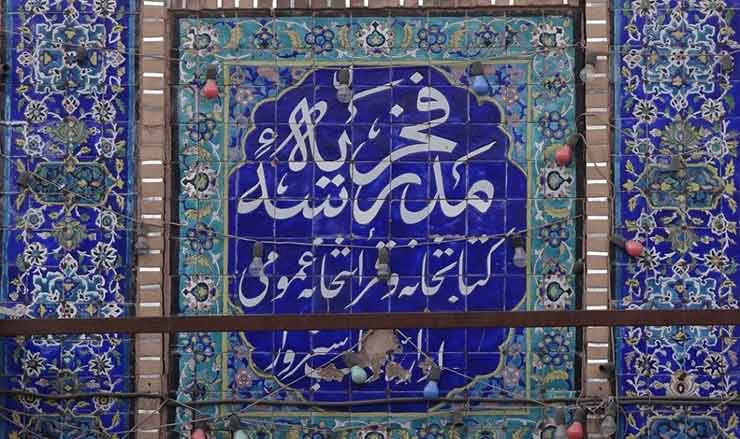 مدرسهٔ فخریه
کتابخانه و قرائتخانه عمومی
سبزوار